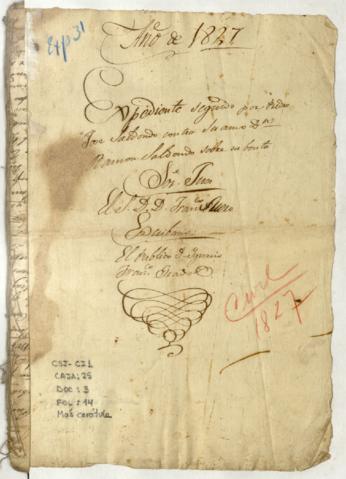 Año de 1827
Exp 31
Expediente seguido por Pedro
Jose Saldondo contra su amo Dn
Ramon Saldondo sobre su venta
El S. D. D. Franco
Escribano
El Publico D. Ignacio
Civil
1827
CSJ-CZ1
CAJA: 25
DOC: 3
FOL: 14
Mas caratula